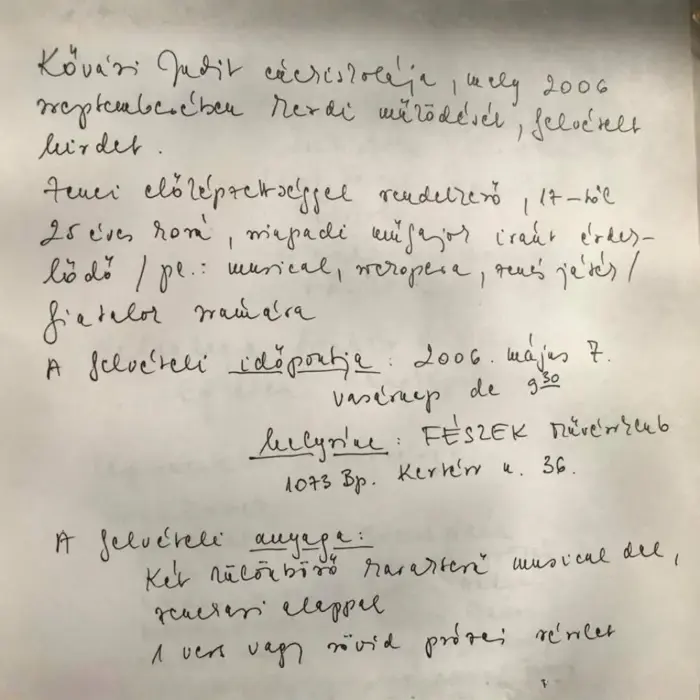 Kővári Judit énekiskolája, mely 2006
szeptemberében kezdi működését, felvételt
hirdet.
Zenei előképzettséggel rendelkező, 17-től
25 éves korú, színpadi műfajok iránt érdek-
lődő / pl.: musical, rockopera, zenés játék /
fiatalok számára
A felvételi időpontja: 2006. május 7.
vasárnap de 9 30
helyszíne: FÉSZEK Művészklub
1073 Bp. Kertész u. 36.
A felvételi anyaga:
Két különböző karakterű musical dal,
zenekari alappal
1 vers vagy rövid prózai részlet